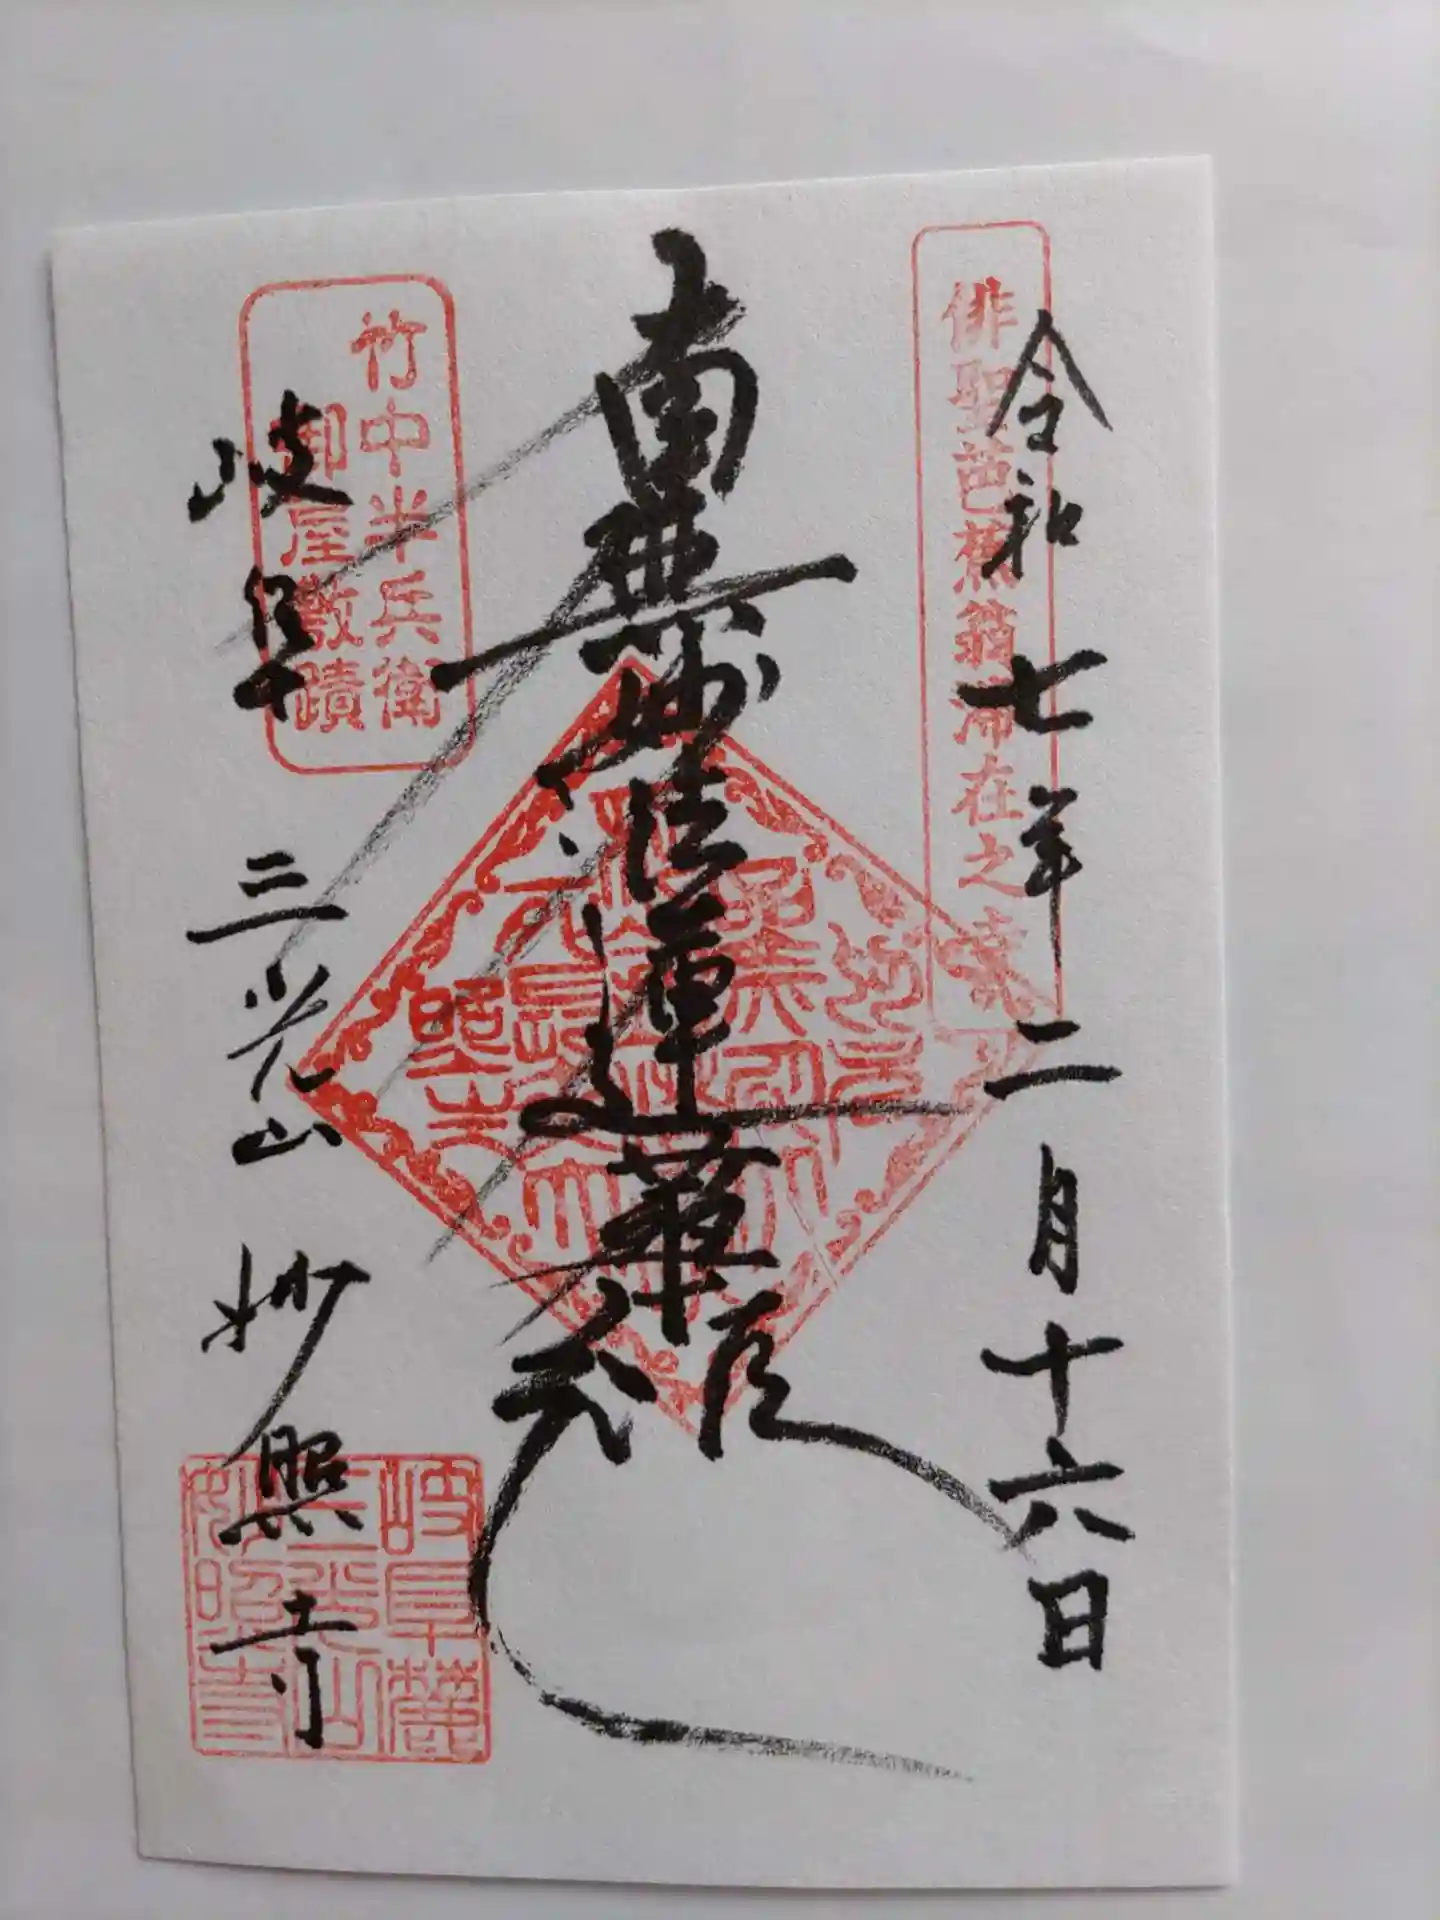 令和七年二月十六日
俳聖芭蕉翁滞在之
南無妙法蓮華経
竹中半兵衛
御屋敷蹟
岐阜 三光山 妙照寺
岐阜麓
三光山
妙照寺